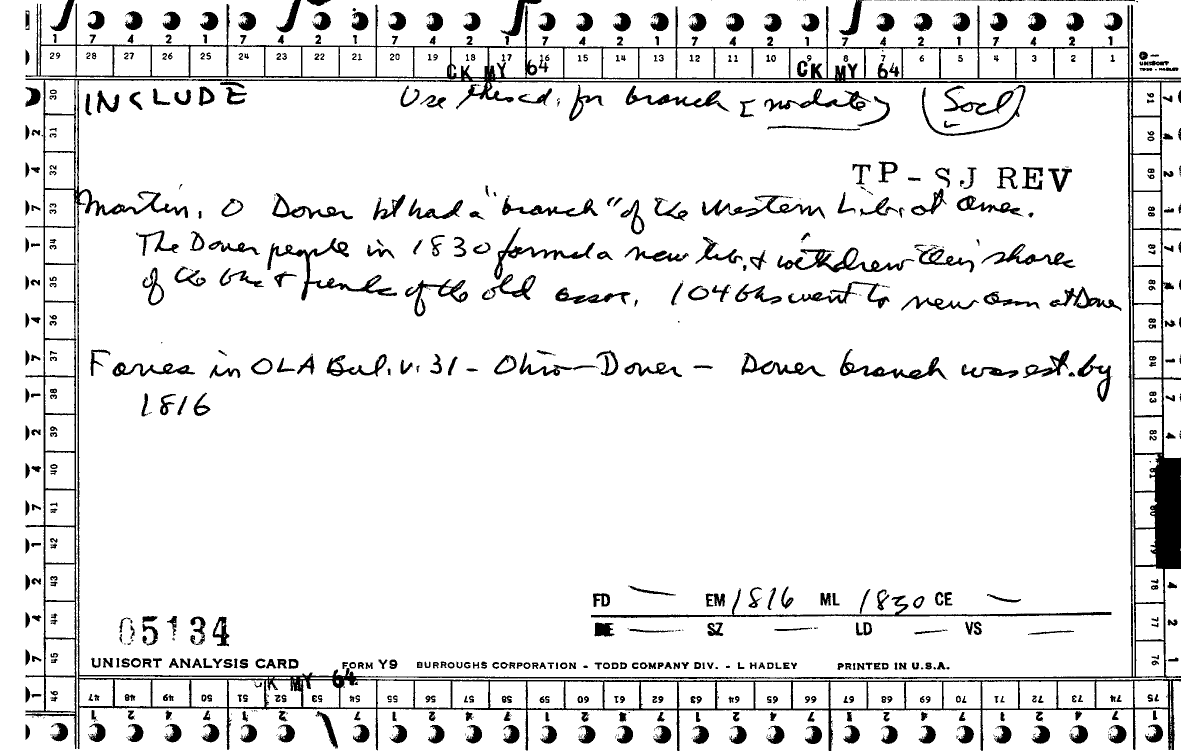 1 7 4 2 1 7 4 2 1 7 4 2 1 7 4 2 1 7 4 2 1 7 4 2 1 7 4 2 1
29 28 27 26 25 24 23 22 21 20 19 18 17 16 15 14 13 12 11 10 9 8 7 6 5 4 3 2 1
CK MY 64 CK MY 64
UNISORT
TODD - HADLEY
INCLUDE Use this cd. for branch [no date] (Socl.)
TP-SJ REV
Martin. O Dover had a "branch" of the Western Libr. of Ames.
The Dover people in 1830 formed a new lib. & withdrew their shares
of the bks & funds of the old assoc. 104 bks went to new assn at Dover
in OLA Bul. v. 31 - Ohio - Dover - Dover branch was est. by
1816
FD — EM 1816 ML 1830 CE —
DE — SZ — LD — VS —
05134
UNISORT ANALYSIS CARD FORM Y9 BURROUGHS CORPORATION - TODD COMPANY DIV. - L HADLEY PRINTED IN U.S.A.
CK MY 64
47 48 49 50 51 52 53 54 55 56 57 58 59 60 61 62 63 64 65 66 67 68 69 70 71 72 73 74 75
1 2 4 7 1 2 4 7 1 2 4 7 1 2 4 7 1 2 4 7 1 2 4 7 1
30 31 32 33 34 35 36 37 38 39 40 41 42 43 44 45 46
91 90 89 88 87 86 85 84 83 82 81 80 79 78 77 76